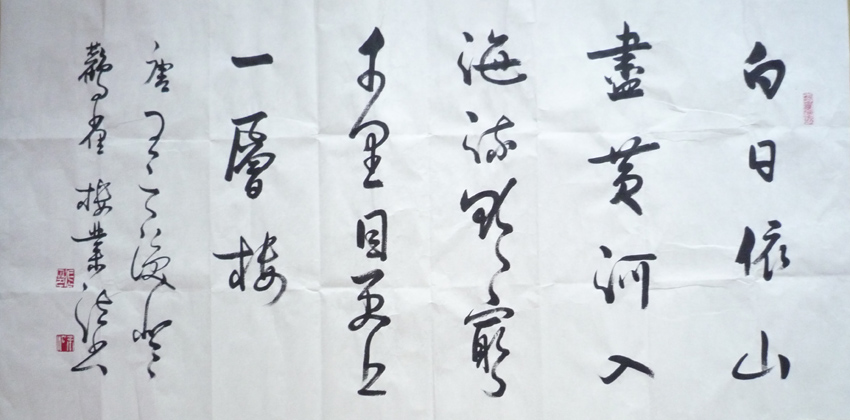 白日依山
盡黄河入
海流欲窮
千里目更上
一層樓
唐王之渙登
鸛雀樓業书